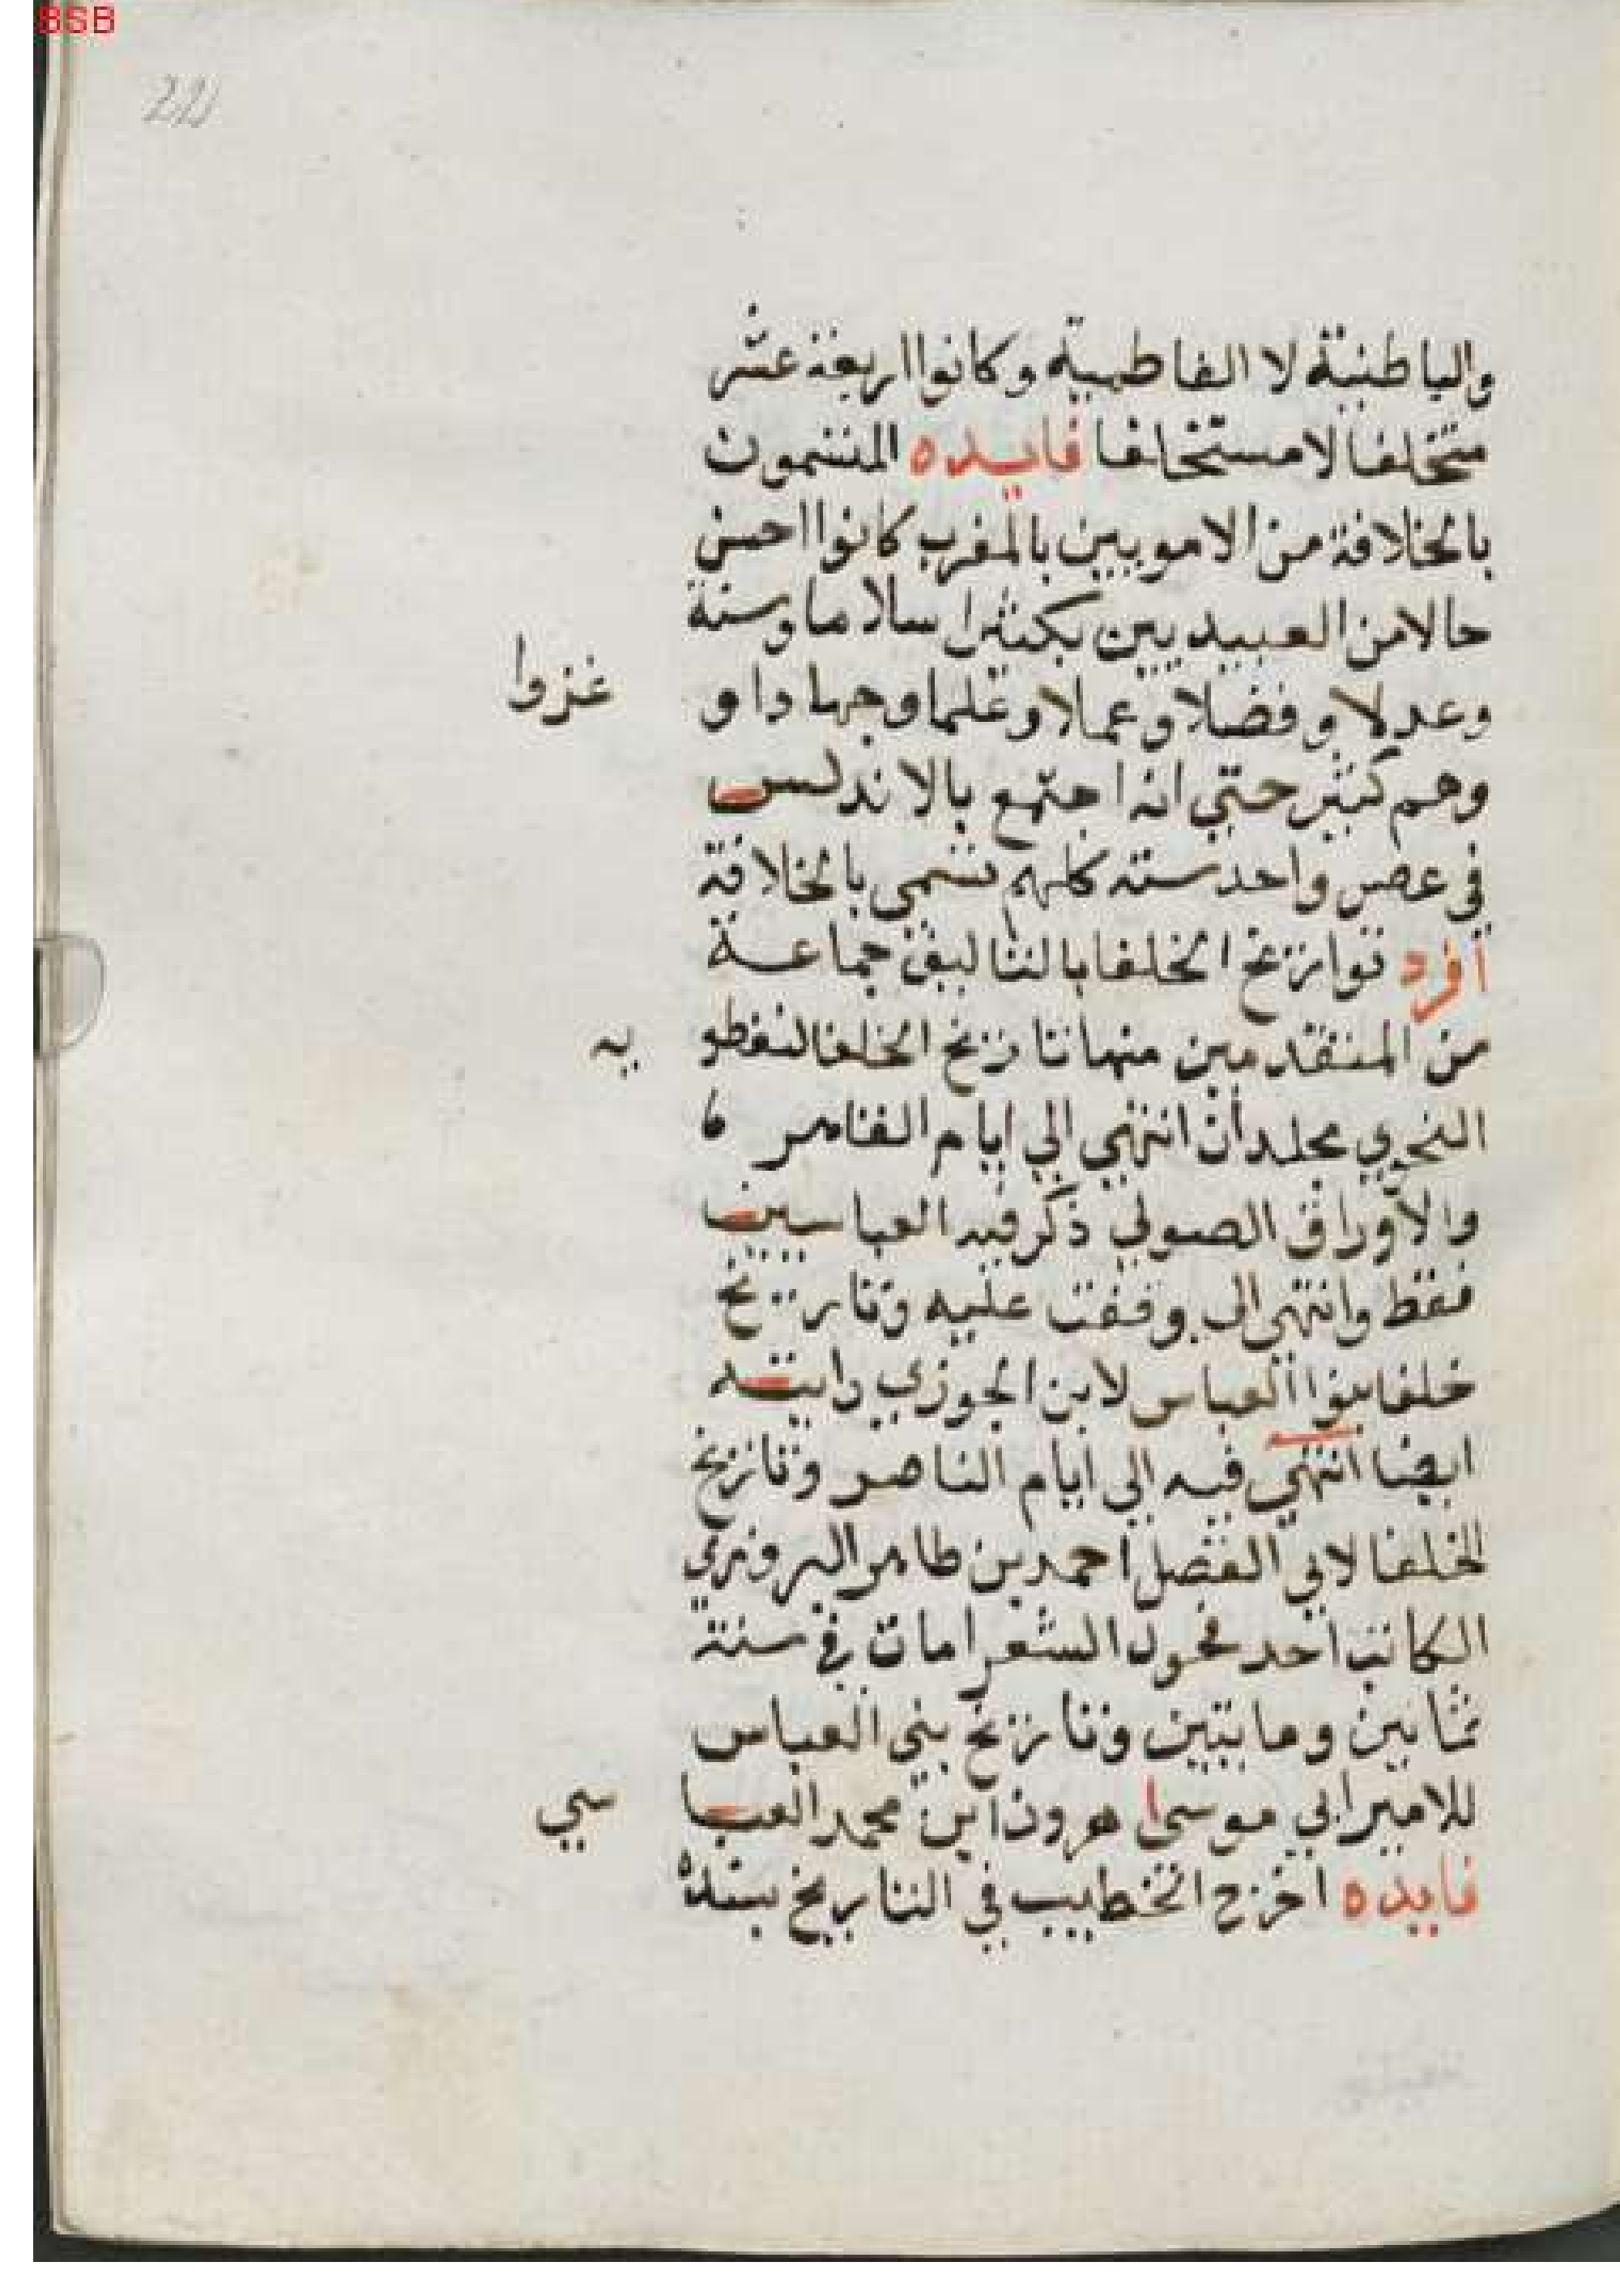 BSB
220
والباطنية لا الفاطمية وكانوا اربعة عشر
متخلفا لا مستخلفا فايده المتسمون
بالخلافة من الامويين بالمغرب كانوا احسن
حالا من العبيديين بكثير اسلاما وسنة
وعدلا وفضلا وعملا وعلما وجهادا و غزوا
وهم كثير حتي انه اجتمع بالاندلس
في عصر واحد ستة كلهم تسمي بالخلافة
افرد تواريخ الخلفا بالتاليف جماعة
من المتقدمين منها تاريخ الخلفا لنفطو يه
النحوي مجلدان انتهي الي ايام القاهر
والاوراق الصولي ذكر فيه العباسيين
فقط وانتهي الي وقفت عليه وتاريخ
خلفا بنوا العباس لابن الجوزي رايته
ايضا انتهي فيه الي ايام الناصر وتاريخ
الخلفا لابي الفضل احمد بن طاهر المروزي
الكاتب احد فحول الشعرا مات في سنة
ثمانين ومايتين وتاريخ بني العباس
للامير ابي موسي هرون ابن محمد العبا سي
فايده اخرج الخطيب في التاريخ بسنده